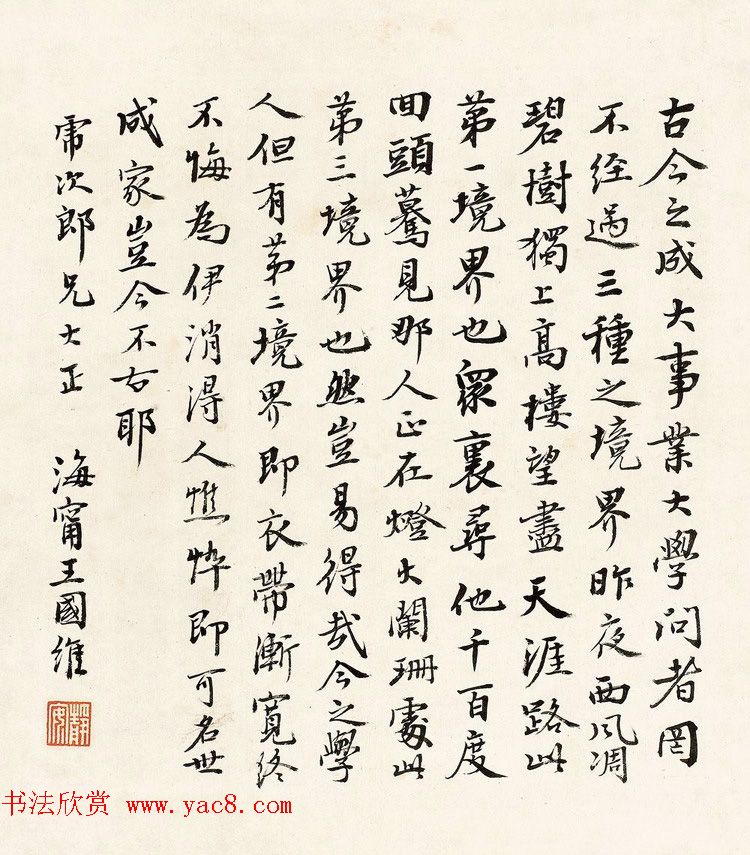 古今之成大事業大學問者罔
不经過三種之境界昨夜西風凋
碧樹獨上高樓望盡天涯路此
第一境界也眾裏尋他千百度
回頭驀見那人正在燈火闌珊處此
第三境界也然豈易得哉今之學
人但有第二境界即衣帶漸寬終
不悔為伊消得人憔悴即可名世
成家豈今不古耶
乕次郎兄大正 海甯王國維
靜安
书法欣赏 www.yac8.com